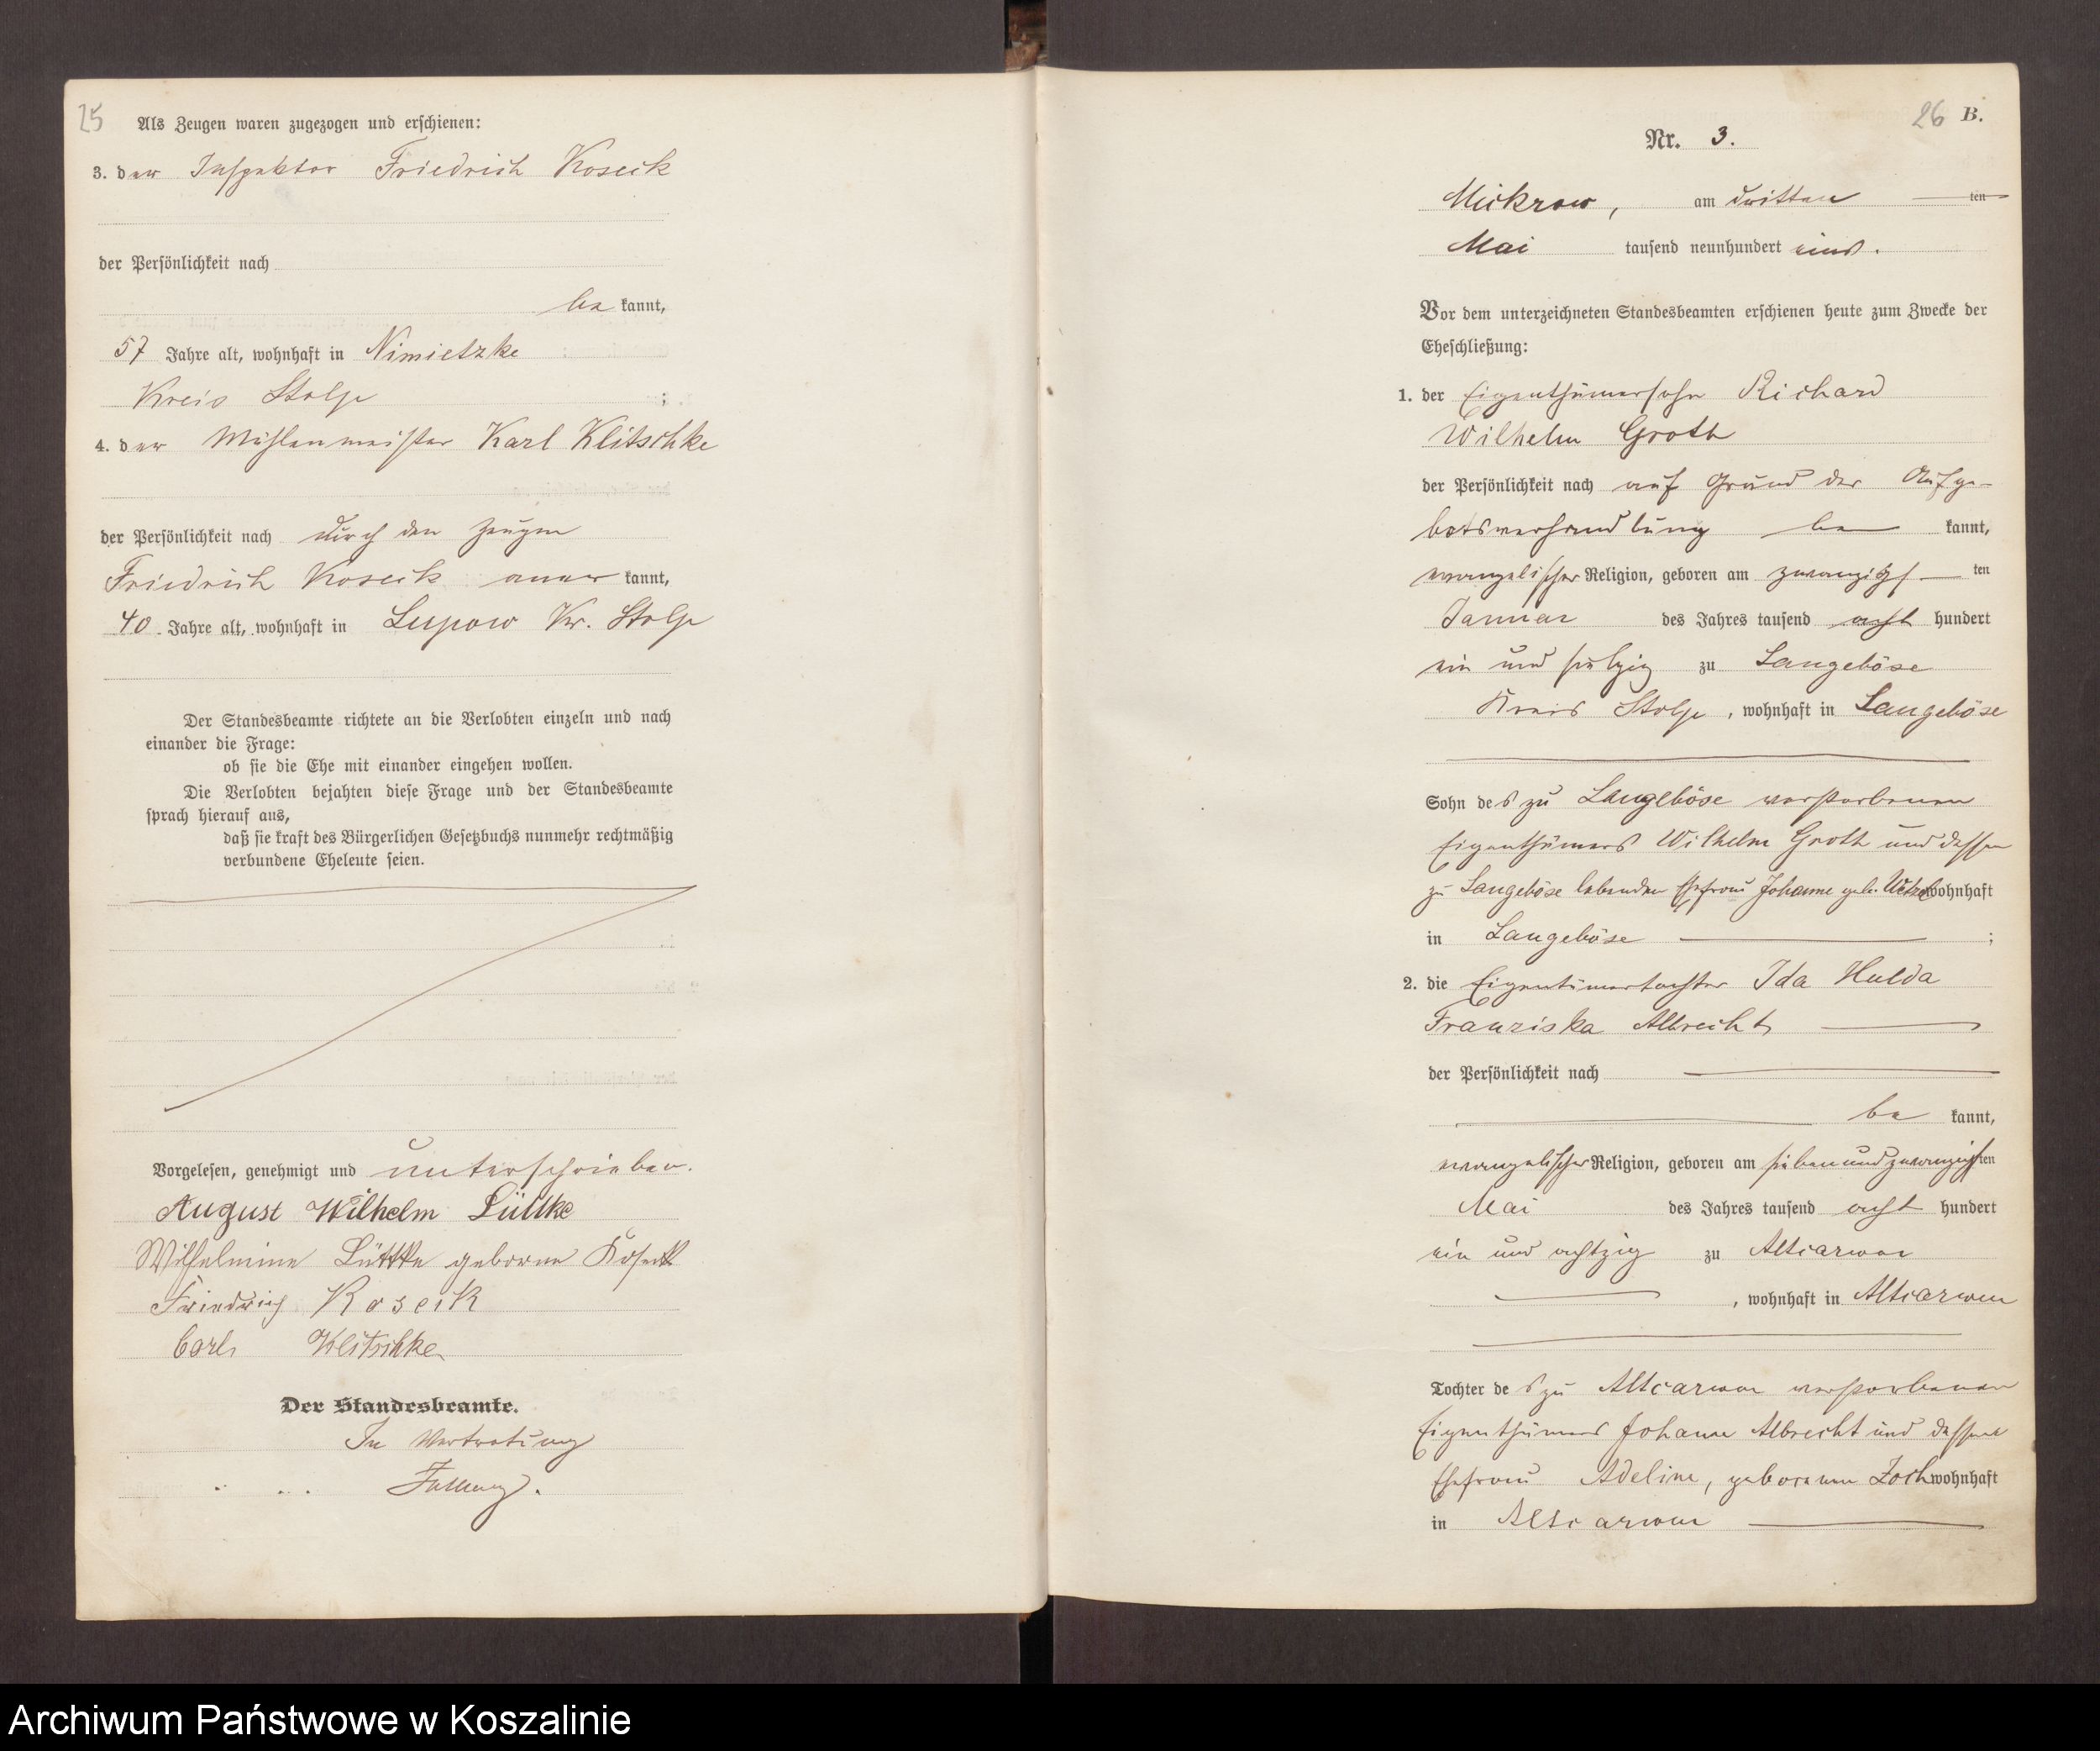 25
Als Zeugen waren zugezogen und erschienen:
3. der Inspektor Friedrich Koseik
der Persönlichkeit nach
be kannt,
57 Jahre alt, wohnhaft in Nimietzke
Kreis Stolp ;
4. der Mühlenmeister Karl Klitschke
der Persönlichkeit nach durch den Zeugen
Friedrich Koseik aner kannt,
40 Jahre alt, wohnhaft in Lupow Kr. Stolp
Der Standesbeamte richtete an die Verlobten einzeln und nach
einander die Frage:
ob sie die Ehe mit einander eingehen wollen.
Die Verlobten bejahten diese Frage und der Standesbeamte
sprach hierauf aus,
daß sie kraft des Bürgerlichen Gesetzbuchs nunmehr rechtmäßig
verbundene Eheleute seien.
Vorgelesen, genehmigt und unterschrieben.
August Wilhelm Lüttke
Wilhelmine Lüttke geborne Koseik
Friedrich Koseik
Carl Klitschke
Der Standesbeamte.
In Vertretung
26 B.
Nr. 3.
Mickrow, am dritten ten
Mai tausend neunhundert eins.
Vor dem unterzeichneten Standesbeamten erschienen heute zum Zwecke der
Eheschließung:
1. der Eigenthümersohn Richard
Wilhelm Groth
der Persönlichkeit nach auf Grund der Aufge-
botsverhandlung be kannt,
evangelischer Religion, geboren am zwanzigs ten
Januar des Jahres tausend acht hundert
ein und siebzig zu Langeböse
Kreis Stolp, wohnhaft in Langeböse
Sohn des zu Langeböse verstorbenen
Eigenthümers Wilhelm Groth und dessen
zu Langeböse lebenden Ehefrau Johanne geb. Wetzel wohnhaft
in Langeböse ;
2. die Eigentümertochter Ida Hulda
Franziska Albrecht
der Persönlichkeit nach
be kannt,
evangelischer Religion, geboren am siebenundzwanzigsten
Mai des Jahres tausend acht hundert
ein und achtzig zu Altcarwen
, wohnhaft in Altcarwen
Tochter des zu Altcarwen verstorbenen
Eigenthümers Johann Albrecht und dessen
Ehefrau Adeline, geborenen Zoch wohnhaft
in Altcarwen
Archiwum Państwowe w Koszalinie